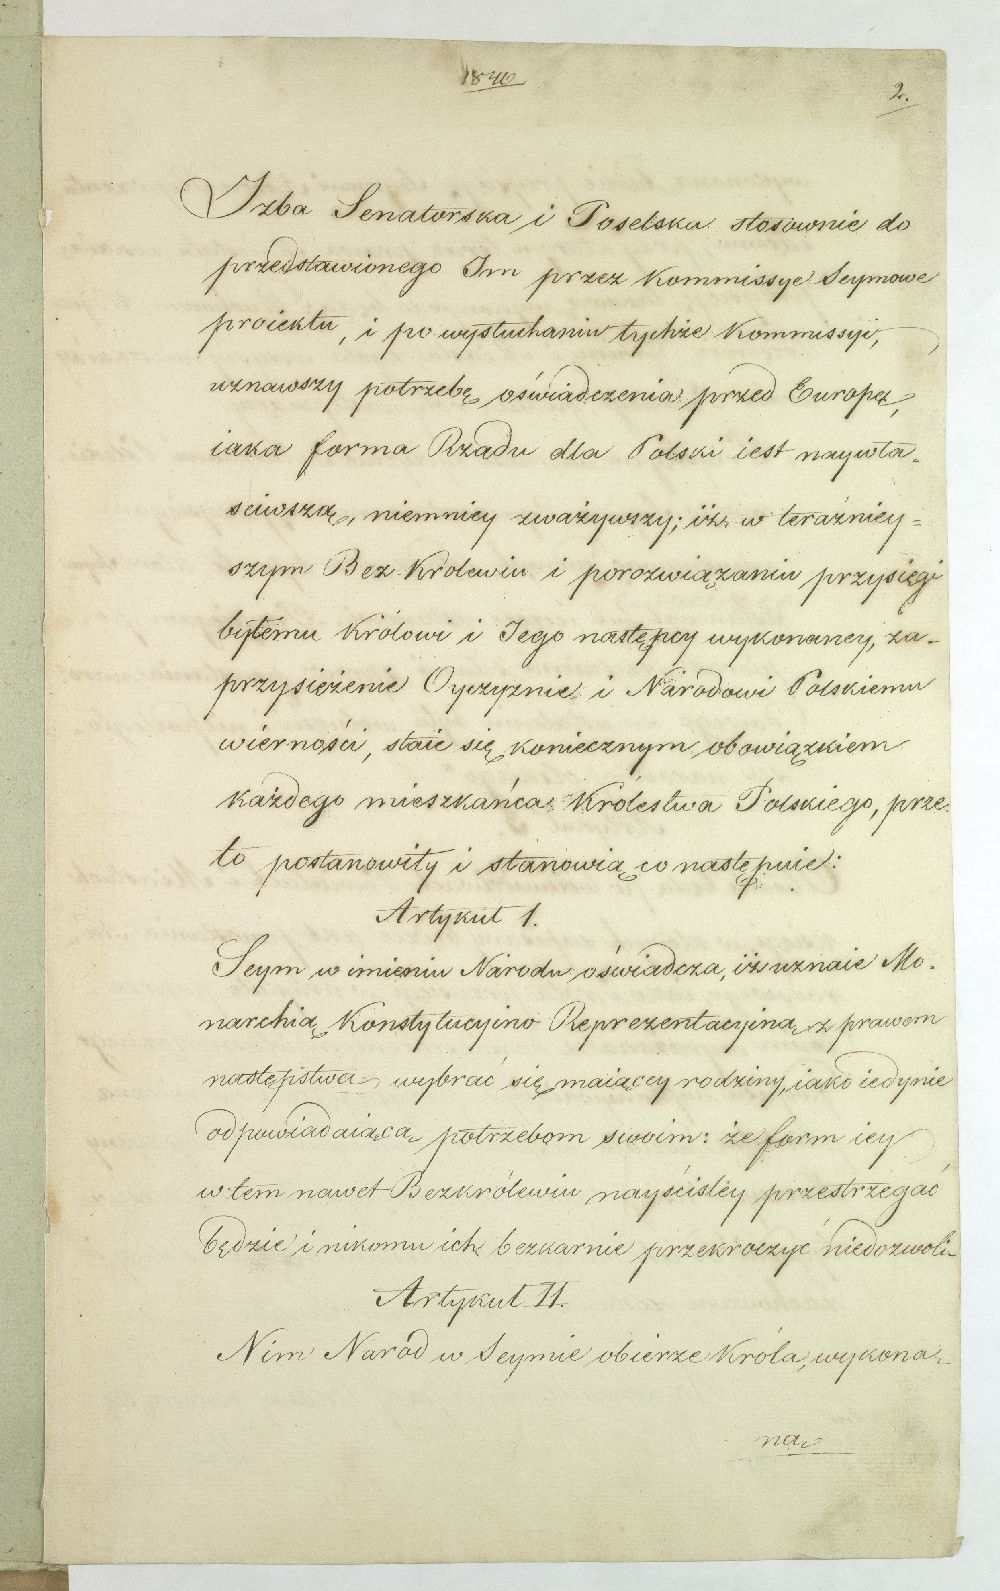 1846
2.
Izba Senatorska i Poselska stosownie do
przedstawionego Im przez Kommissye Seymowe
proiektu, i po wysłuchaniu tychże Kommissyi,
uznawszy potrzebę oświadczenia przed Europą,
iaka forma Rządu dla Polski iest naywła-
sciwszą, niemniey zważywszy; iż w teraźniey=
szym Bez-Królewiu i porozwiązaniu przysięgi
byłemu Królowi i Jego następcy wykonaney, za-
przysiężenie Oyczyznie i Narodowi Polskiemu
wierności, staie się koniecznym obowiązkiem
każdego mieszkańca Królestwa Polskiego, prze-
to postanowiły i stanowią co następuie:
Artykuł I.
Seym w imieniu Narodu oświadcza, iż uznaie Mo-
narchią Konstytucyino Reprezentacyiną z prawem
następstwa wybrać się maiącey rodziny, iako iedynie
odpowiadaiącą potrzebom swoim: że form iey
w tem nawet Bezkrólewiu nayściśley przestrzegać
będzie i nikomu ich bezkarnie przekroczyć niedozwoli
Artykuł II.
Nim Naród w Seymie obierze Króla, wykona-
na